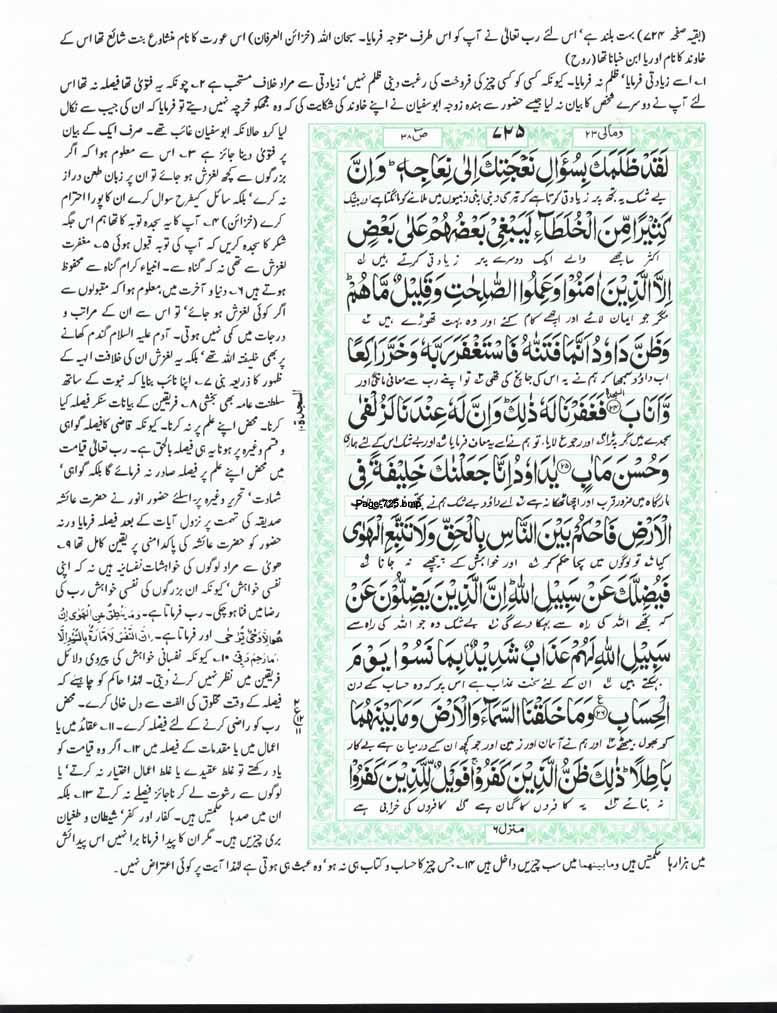 (بقیہ صفحہ ۷۲۴) بہت بلند ہے' اس لئے رب تعالیٰ نے آپ کو اس طرف متوجہ فرمایا۔ سبحان اللہ (خزائن العرفان) اس عورت کا نام منشاوع بنت شائع تھا اس کے
خاوند کا نام اوریا ابن خیانا تھا (روح)
۱؎ اسے زیادتی فرمایا' ظلم نہ فرمایا۔ کیونکہ کسی کو کسی چیز کی فروخت کی رغبت دینی ظلم نہیں' زیادتی سے مراد خلاف مستحب ہے ۲؎ چونکہ یہ فتویٰ تھا فیصلہ نہ تھا اس
لئے آپ نے دوسرے شخص کا بیان نہ لیا جیسے حضور سے ہندہ زوجہ ابوسفیان نے اپنے خاوند کی شکایت کی کہ وہ مجھکو خرچہ نہیں دیتے تو فرمایا کہ ان کی جیب سے نکال
ومالی ۲۳
۷۲۵
ص ۳۸
لَقَدْ ظَلَمَكَ بِسُؤَالِ نَعْجَتِكَ اِلٰى نِعَاجِهٖ ؕ وَاِنَّ
بے شک یہ تجھ پر زیادتی کرتا ہے کہ تیری دنبی اپنی دنبیوں میں ملانے کو مانگتا ہے اور بیشک
كَثِيْرًا مِّنَ الْخُلَطَآءِ لَيَبْغِيْ بَعْضُهُمْ عَلٰى بَعْضٍ
اکثر ساجھے والے ایک دوسرے پر زیادتی کرتے ہیں
اِلَّا الَّذِيْنَ اٰمَنُوْا وَعَمِلُوا الصّٰلِحٰتِ وَقَلِيْلٌ مَّا هُمْ
مگر جو ایمان لائے اور اچھے کام کئے اور وہ بہت تھوڑے ہیں
وَظَنَّ دَاوٗدُ اَنَّمَا فَتَنّٰهُ فَاسْتَغْفَرَ رَبَّهٗ وَخَرَّ رَاكِعًا
اب داؤد سمجھا کہ ہم نے یہ اس کی جانچ کی تھی تو اپنے رب سے معافی مانگی اور
وَّاَنَابَ ۩ فَغَفَرْنَا لَهٗ ذٰلِكَ ؕ وَاِنَّ لَهٗ عِنْدَنَا لَزُلْفٰى
سجدے میں گر پڑا اور رجوع لایا، تو ہم نے اسے یہ معاف فرمایا اور بے شک اس کے لئے ہماری
وَحُسْنَ مَاٰبٍ ۲۵ يٰدَاوٗدُ اِنَّا جَعَلْنٰكَ خَلِيْفَةً فِى
بارگاہ میں ضرور قرب اور اچھا ٹھکانا ہے اے داؤد بے شک ہم نے
Page-725.bmp
الْاَرْضِ فَاحْكُمْ بَيْنَ النَّاسِ بِالْحَقِّ وَلَا تَتَّبِعِ الْهَوٰى
کیا تو لوگوں میں سچا حکم کر اور خواہش کے پیچھے نہ جانا
فَيُضِلَّكَ عَنْ سَبِيْلِ اللّٰهِ ؕ اِنَّ الَّذِيْنَ يَضِلُّوْنَ عَنْ
کہ تجھے اللہ کی راہ سے بہکا دے گی بے شک وہ جو اللہ کی راہ سے
سَبِيْلِ اللّٰهِ لَهُمْ عَذَابٌ شَدِيْدٌۢ بِمَا نَسُوْا يَوْمَ
بہکتے ہیں ان کے لئے سخت عذاب ہے اس پر کہ وہ حساب کے دن
الْحِسَابِ ۲۶ وَمَا خَلَقْنَا السَّمَآءَ وَالْاَرْضَ وَمَا بَيْنَهُمَا
کو بھول بیٹھے اور ہم نے آسمان اور زمین اور جو کچھ ان کے درمیان ہے بے کار
بَاطِلًا ؕ ذٰلِكَ ظَنُّ الَّذِيْنَ كَفَرُوْا ۚ فَوَيْلٌ لِّلَّذِيْنَ كَفَرُوْا
نہ بنائے یہ کافروں کا گمان ہے تو کافروں کی خرابی ہے
منزل ۶
السجدۃ ۱۰
لیا کرو حالانکہ ابوسفیان غائب تھے۔ صرف ایک کے بیان
پر فتویٰ دینا جائز ہے ۳؎ اس سے معلوم ہوا کہ اگر
بزرگوں سے کچھ لغزش ہو جائے تو ان پر زبان طعن دراز
نہ کرے' بلکہ سائل کیطرح سوال کرے ان کا پورا احترام
کرے (خزائن) ۴؎ آپ کا یہ سجدہ توبہ کا تھا ہم اس جگہ
شکر کا سجدہ کریں کہ آپ کی توبہ قبول ہوئی ۵؎ مغفرت
لغزش سے تھی نہ کہ گناہ سے۔ انبیاء کرام گناہ سے محفوظ
ہوتے ہیں ۶؎ دنیا و آخرت میں معلوم ہوا کہ مقبولوں سے
اگر کوئی لغزش ہو جائے' تو اس سے ان کے مراتب و
درجات میں کمی نہیں ہوتی۔ آدم علیہ السلام گندم کھانے
پر بھی خلیفتہ اللہ تھے' بلکہ یہ لغزش ان کی خلافت الہیہ کے
ظہور کا ذریعہ بنی ۷؎ اپنا نائب بنایا کہ نبوت کے ساتھ
سلطنت عامہ بھی بخشی ۸؎ فریقین کے بیانات سنکر فیصلہ کیا
کرنا۔ محض اپنے علم پر نہ کرنا۔ کیونکہ قاضی کا فیصلہ گواہی
و قسم وغیرہ پر ہونا یہ ہی فیصلہ بالحق ہے۔ رب تعالیٰ قیامت
میں محض اپنے علم پر فیصلہ صادر نہ فرمائے گا بلکہ گواہی'
شہادت' تحریر وغیرہ پر۔ اسلئے حضور انور نے حضرت عائشہ
صدیقہ کی تہمت پر نزول آیات کے بعد فیصلہ فرمایا ورنہ
حضور کو حضرت عائشہ کی پاکدامنی پر یقین کامل تھا ۹؎
ھویٰ سے مراد لوگوں کی خواہشات نفسانیہ ہیں نہ کہ اپنی
نفسی خواہش' کیونکہ ان بزرگوں کی نفسی خواہش رب کی
رضا میں فنا ہو چکی۔ رب فرماتا ہے۔ وَمَا يَنْطِقُ عَنِ الْهَوٰى اِنْ
هُوَ اِلَّا وَحْيٌ يُّوْحٰى اور فرماتا ہے۔ اِنَّ النَّفْسَ لَاَمَّارَةٌۢ بِالسُّوْٓءِ اِلَّا
مَا رَحِمَ رَبِّيْ ۱۰؎ کیونکہ نفسانی خواہش کی پیروی دلائل
فریقین میں نظر نہیں کرنے دیتی۔ لہٰذا حاکم کو چاہیے کہ
فیصلہ کے وقت مخلوق کی الفت سے دل خالی کرے۔ محض
رب کو راضی کرنے کے لئے فیصلہ کرے۔ ۱۱؎ عقائد میں یا
اعمال میں یا مقدمات کے فیصلہ میں ۱۲؎ اگر وہ قیامت کو
یاد رکھتے تو غلط عقیدے یا غلط اعمال اختیار نہ کرتے' یا
لوگوں سے رشوت لے کر ناجائز فیصلے نہ کرتے ۱۳؎ بلکہ
ان میں صدہا حکمتیں ہیں۔ کفار اور کفر' شیطان و طغیان
بری چیزیں ہیں۔ مگر ان کا پیدا فرمانا برا نہیں اس پیدائش
میں ہزارہا حکمتیں ہیں ومابینھما میں سب چیزیں داخل ہیں ۱۴؎ جس چیز کا حساب و کتاب ہی نہ ہو' وہ عبث ہی ہوتی ہے لہٰذا آیت پر کوئی اعتراض نہیں۔